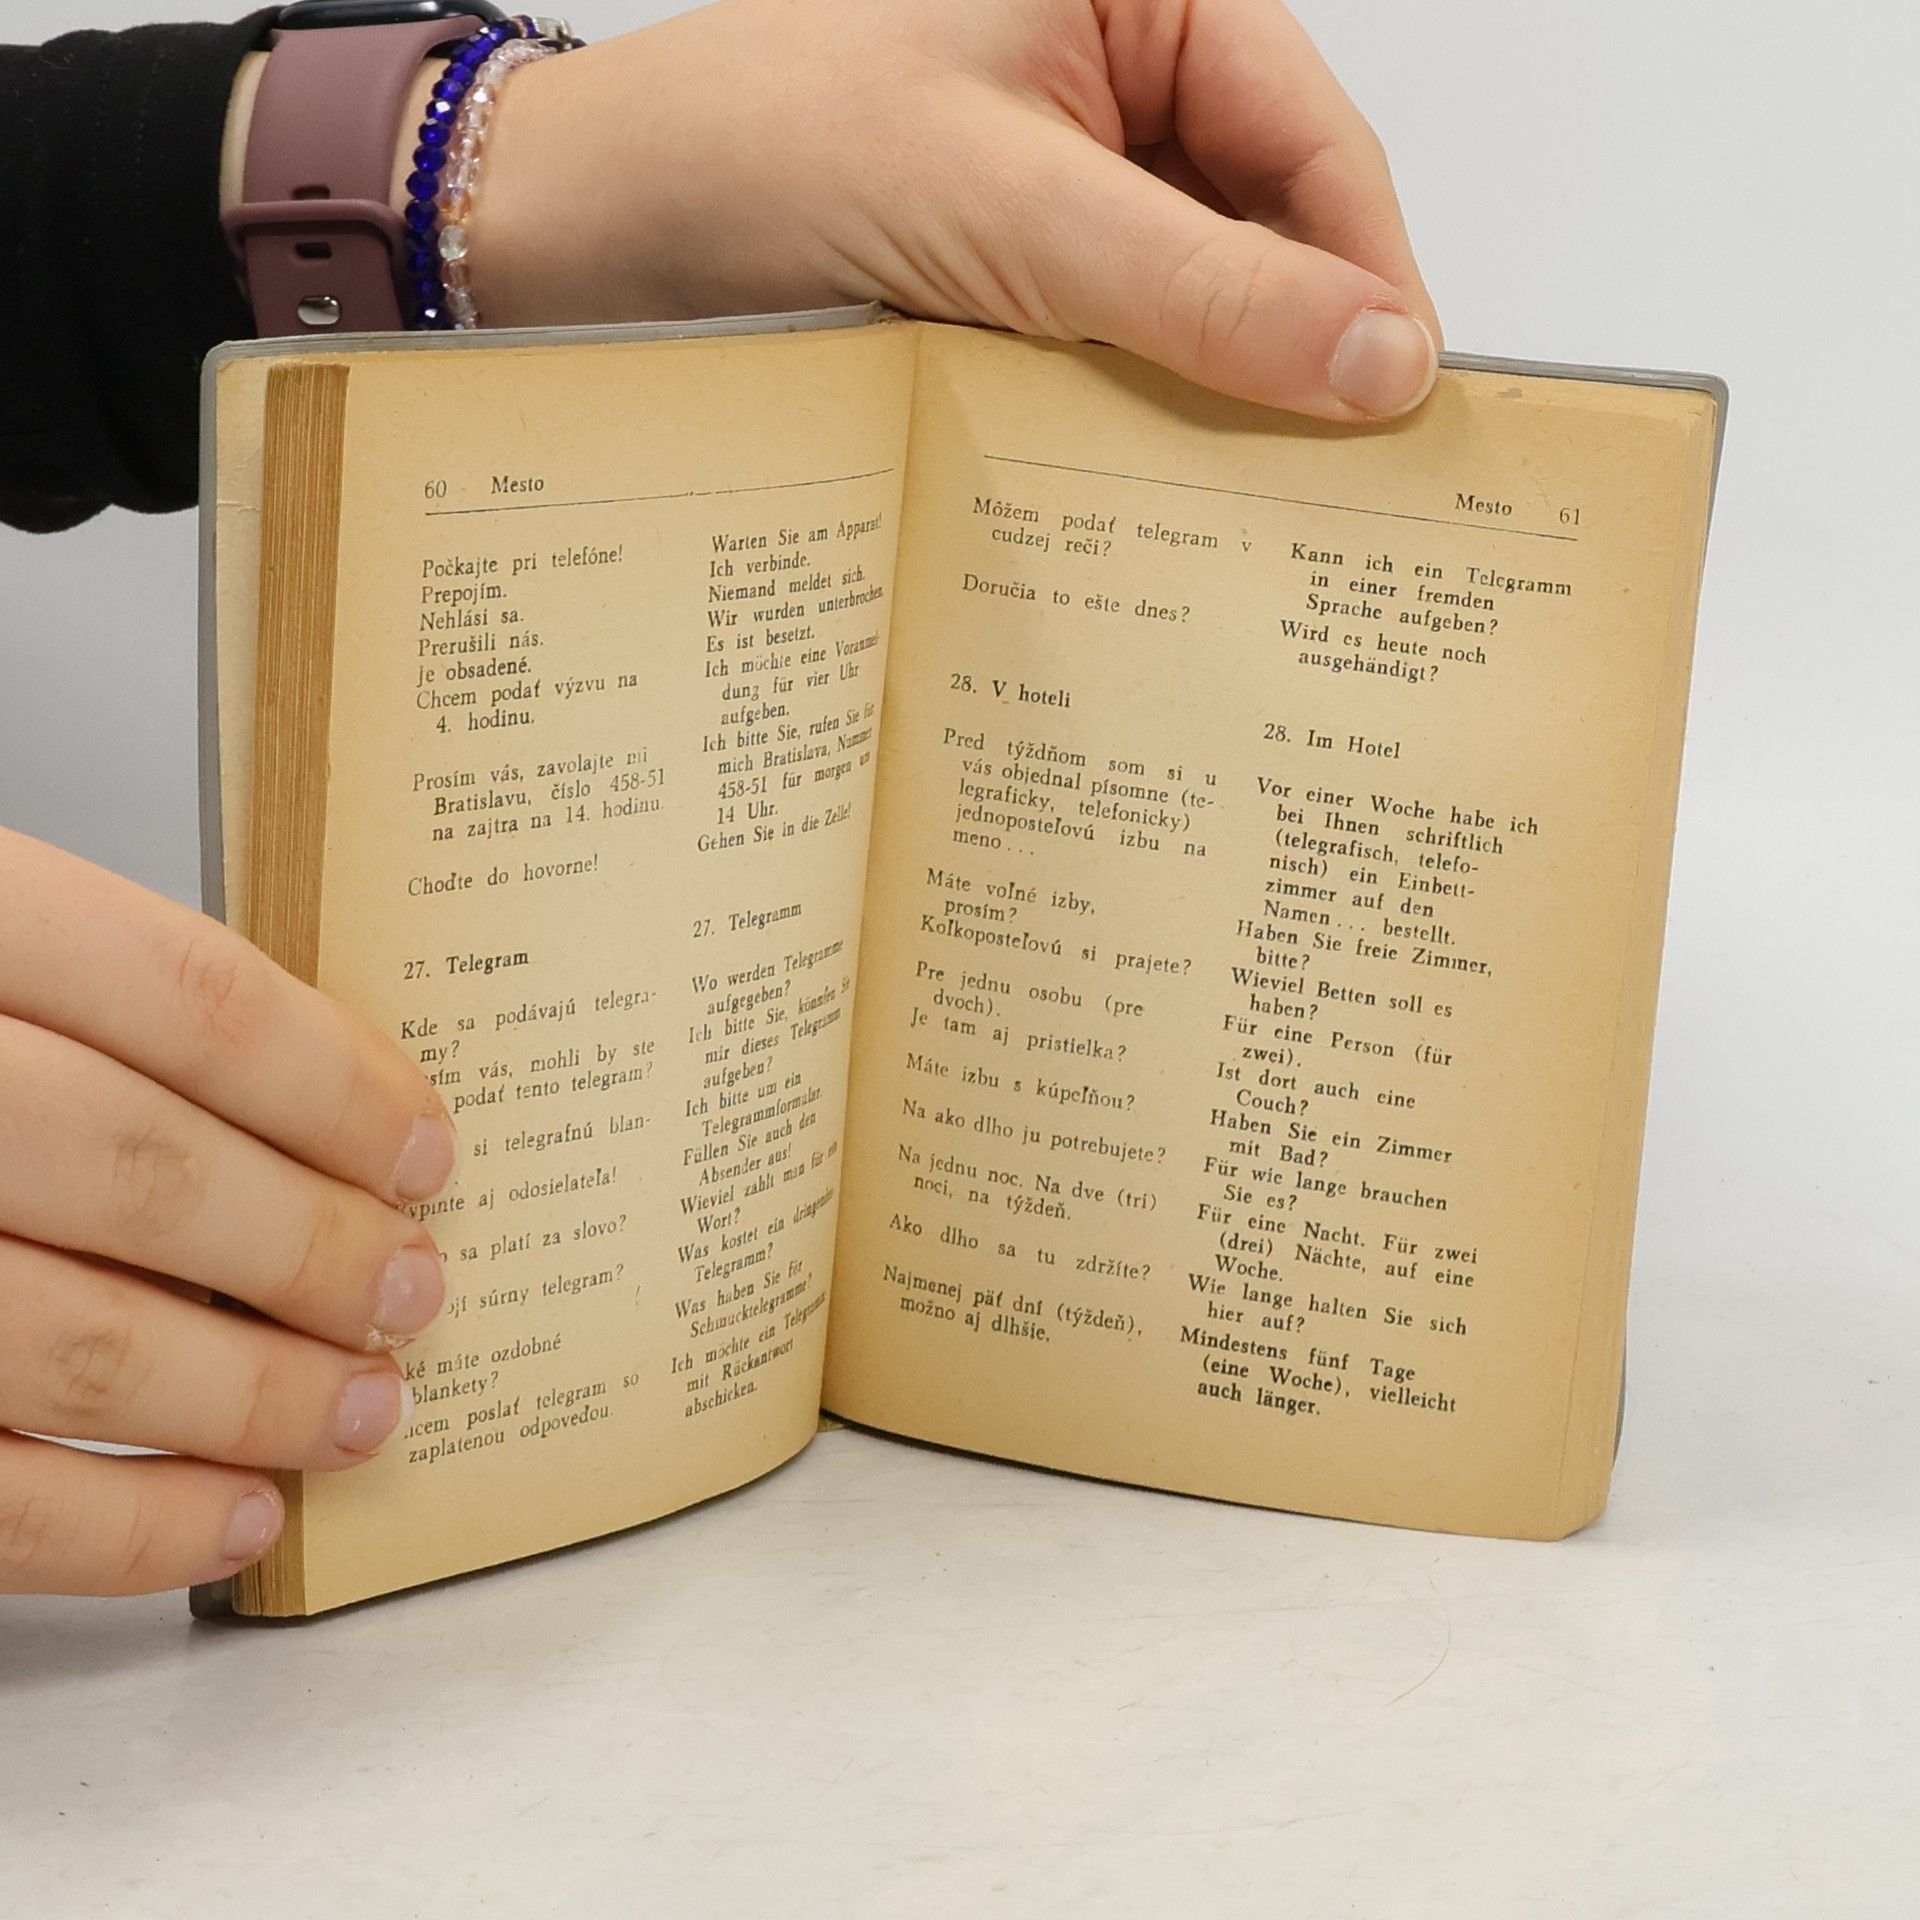 60 Mesto
Počkajte pri telefóne!
Prepojím.
Nehlási sa.
Prerušili nás.
Je obsadené.
Chcem podať výzvu na
4. hodinu.
Prosím vás, zavolajte mi
Bratislavu, číslo 458-51
na zajtra na 14. hodinu.
Choďte do hovorne!
27. Telegram
Kde sa podávajú telegra-
my?
vás, mohli by ste
podať tento telegram?
si telegrafnú blan-
aj odosielateľa!
sa platí za slovo?
súrny telegram?
máte ozdobné
blankety?
poslať telegram so
zaplatenou odpoveďou.
Warten Sie am Apparat!
Ich verbinde.
Niemand meldet sich.
Wir wurden unterbrochen.
Es ist besetzt.
Ich möchte eine Voranmel-
dung für vier Uhr
aufgeben.
Ich bitte Sie, rufen Sie für
mich Bratislava, Nummer
458-51 für morgen um
14 Uhr.
Gehen Sie in die Zelle!
27. Telegramm
Wo werden Telegramme
aufgegeben?
Ich bitte Sie, könnten Sie
mir dieses Telegramm
aufgeben?
Ich bitte um ein
Telegrammformular.
Füllen Sie auch den
Absender aus!
Wieviel zahlt man für ein
Wort?
Was kostet ein dringendes
Telegramm?
Was haben Sie für
Schmucktelegramme?
Ich möchte ein Telegramm
mit Rückantwort
abschicken.
Mesto 61
Môžem podať telegram v
cudzej reči?
Doručia to ešte dnes?
28. V hoteli
Pred týždňom som si u
vás objednal písomne (te-
legraficky, telefonicky)
jednoposteľovú izbu na
meno . . .
Máte voľné izby,
prosím?
Koľkoposteľovú si prajete?
Pre jednu osobu (pre
dvoch).
Je tam aj pristielka?
Máte izbu s kúpeľňou?
Na ako dlho ju potrebujete?
Na jednu noc. Na dve (tri)
noci, na týždeň.
Ako dlho sa tu zdržíte?
Najmenej päť dní (týždeň),
možno aj dlhšie.
Kann ich ein Telegramm
in einer fremden
Sprache aufgeben?
Wird es heute noch
ausgehändigt?
28. Im Hotel
Vor einer Woche habe ich
bei Ihnen schriftlich
(telegrafisch, telefo-
nisch) ein Einbett-
zimmer auf den
Namen . . . bestellt.
Haben Sie freie Zimmer,
bitte?
Wieviel Betten soll es
haben?
Für eine Person (für
zwei).
Ist dort auch eine
Couch?
Haben Sie ein Zimmer
mit Bad?
Für wie lange brauchen
Sie es?
Für eine Nacht. Für zwei
(drei) Nächte, auf eine
Woche.
Wie lange halten Sie sich
hier auf?
Mindestens fünf Tage
(eine Woche), vielleicht
auch länger.